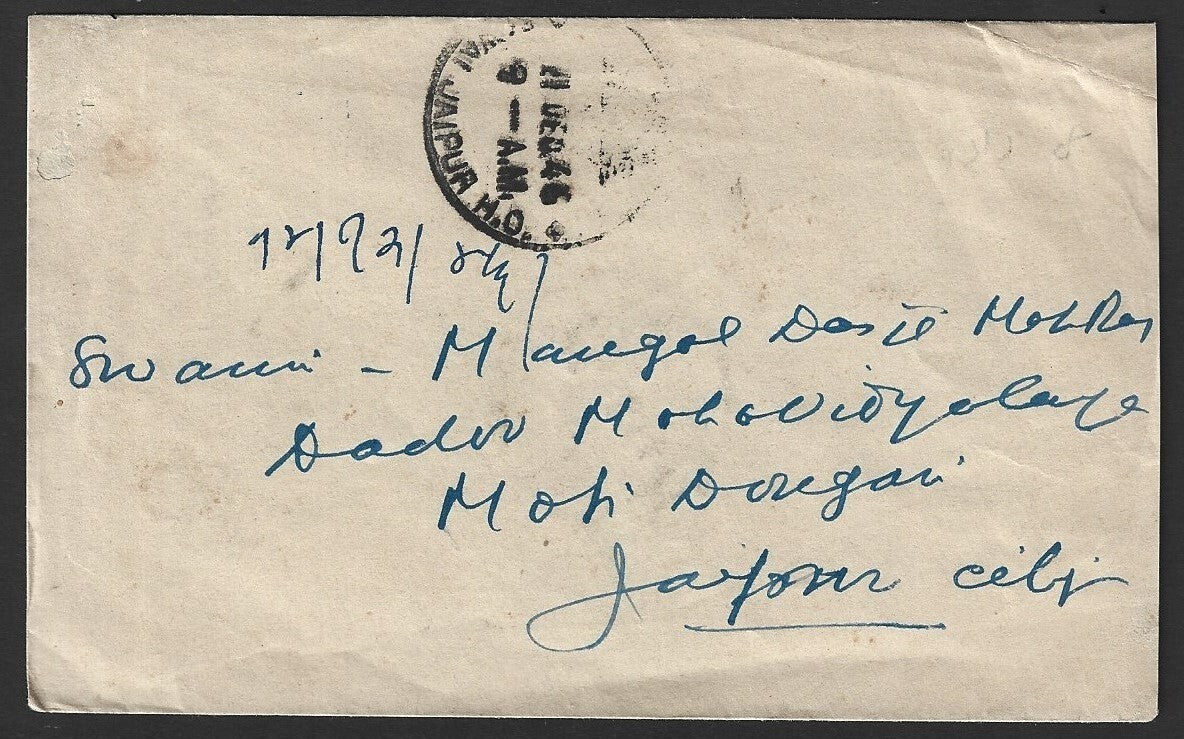 JAIPUR H.O.
11 DEC 46
9 – A.M.
Swami - Mangal Dasji
Dadu Mahavidyalaya
Moti Dongari
Jaipur city